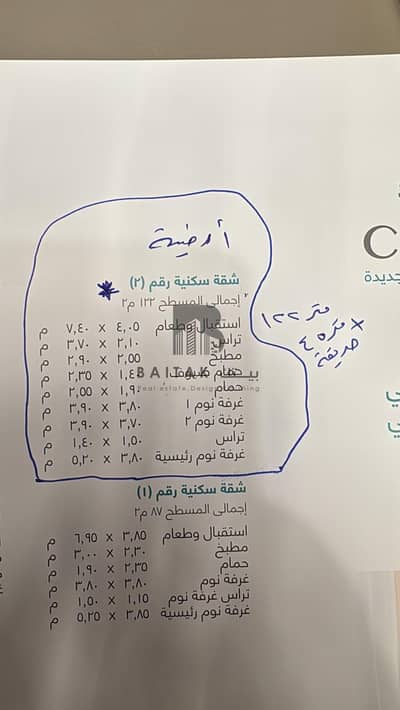 أرضية
شقة سكنية رقم (٢)
إجمالى المسطح ١٢٢ م٢
استقبال وطعام ٤,٠٥ X ٧,٤٠ م
تراس ٢,١٠ X ٣,٧٠ م
مطبخ ٢,٥٥ X ٢,٩٠ م
حمام X ٢,٣٥ م
حمام ١,٩٠ X ٢,٥٥ م
غرفة نوم ١ ٣,٨٠ X ٣,٩٠ م
غرفة نوم ٢ ٣,٧٠ X ٣,٩٠ م
تراس ١,٥٠ X ١,٤٠ م
غرفة نوم رئيسية ٣,٨٠ X ٥,٢٠ م
١٢٢ متر
x ٤٥ متر
حديقة
شقة سكنية رقم (١)
إجمالى المسطح ٨٧ م٢
استقبال وطعام ٣,٨٥ X ٦,٩٥ م
مطبخ ٢,٣٠ X ٣,٠٠ م
حمام ٢,٣٥ X ١,٩٠ م
غرفة نوم ٣,٨٠ X ٣,٨٠ م
تراس غرفة نوم ١,١٥ X ١,٥٠ م
غرفة نوم رئيسية ٣,٨٥ X ٥,٢٥ م
C
جديدة
BAITAK بيتك
Real estate, Design,